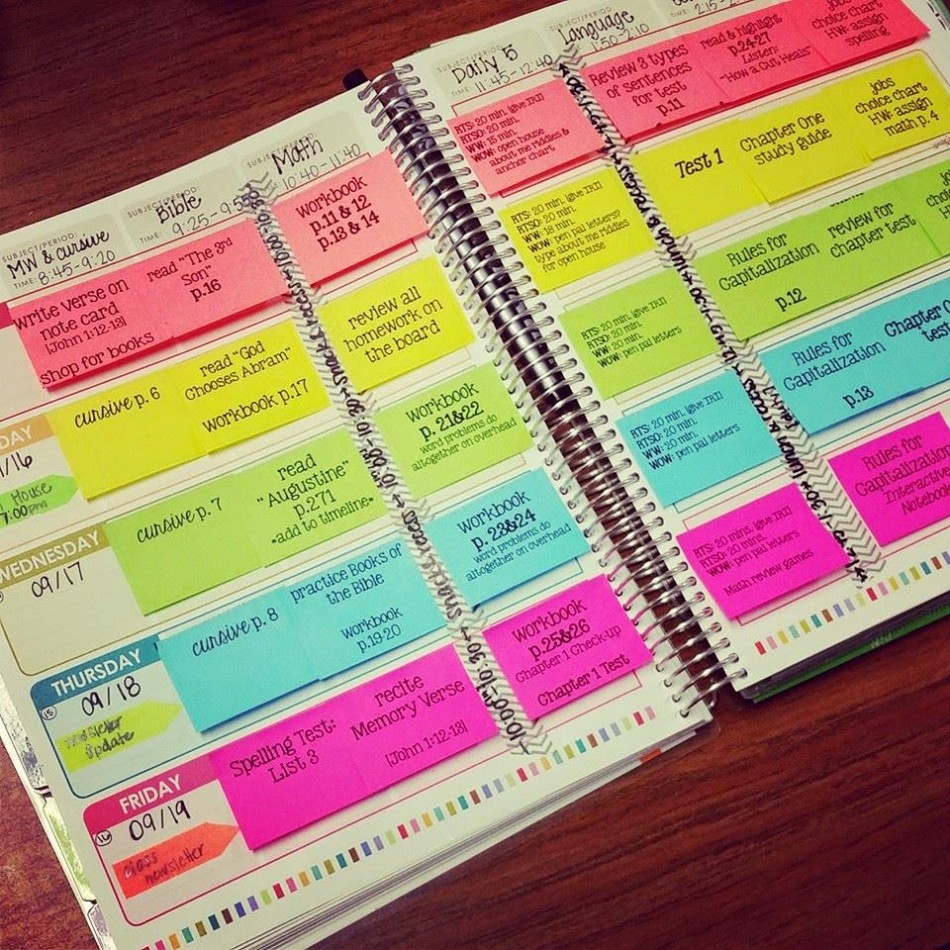 SUBJECT/PERIOD:
MW & cursive
TIME: 8:45-9:20
SUBJECT/PERIOD:
Bible
TIME: 9:25-9:5
SUBJECT/PERIOD:
Math
10:40-11:40
write verse on
note card
[John 1:12-13]
shop for books
read "The 3rd
Son"
p.16
workbook
p.11 & 12
p.13 & 14
DAY
/16
House
7:00pm
cursive p. 6
read "God
Chooses Abram"
workbook p.17
review all
homework on
the board
WEDNESDAY
09/17
cursive p. 7
read
"Augustine"
p.271
*add to timeline*
workbook
p. 21&22
word problems do
altogether on overhead
THURSDAY
09/18
newsletter
update
cursive p. 8
practice Books of
the Bible
workbook
p.19-20
workbook
p. 23&24
word problems do
altogether on overhead
FRIDAY
09/19
16
class
newsletter
Spelling Test:
List 3
recite
Memory Verse
[John 1:12-13]
workbook
p.25&26
Chapter 1 Check-up
Chapter 1 Test
10:00-10:30
snack & recess
SUBJECT/PERIOD:
Daily 5
TIME: 11:45-12:40
SUBJECT/PERIOD:
Language
1:50-2:10
2:15-2
RTS: 20 min. (give IRN)
RTSO: 20 min.
WW: 15 min.
WOW: open house
about me riddles &
anchor chart
Review 3 types
of sentences
for test
p.11
read & highlight
p.24-27
Listen:
"How a Cut Heals"
jobs
choice chart
HW: assign
spelling
RTS: 20 min. (give IRN)
RTSO: 20 min.
WW: 18 min.
WOW: pen pal letters?
type about me riddles
for open house
Test 1
Chapter One
study guide
jobs
choice chart
HW: assign
math p. 4
RTS: 20 min. (give IRN)
RTSO: 20 min.
WW: 20 min.
WOW: pen pal letters
Rules for
Capitalization
p.12
review for
chapter test
RTS: 20 min. (give IRN)
RTSO: 20 min.
WW: 20 min.
WOW: pen pal letters
Rules for
Capitalization
p.13
Chapter
RTS: 20 mins. (give IRN)
RTSO: 20 mins.
WOW: pen pal letters
Math review games
Rules for
Capitalization
Interactive
Notebook
lunch & recess